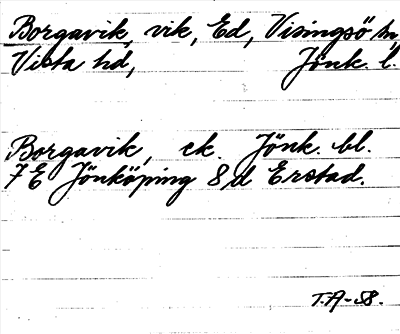 Borgavik, vik, Ed, Visingsö sn
Vista hd, Jönk. l.
Borgavik, ek. Jönk. bl.
7E Jönköping 8d Erstad.
T.A-58.